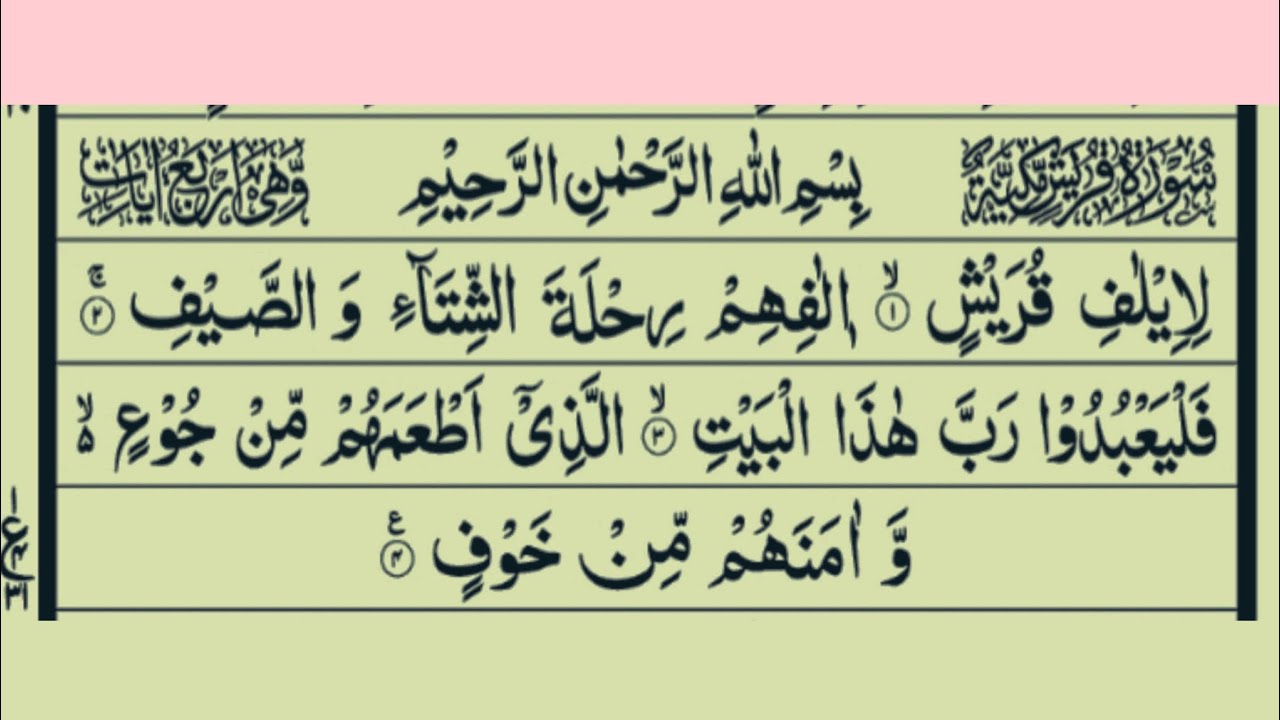 سُوْرَةُ قُرَيْشٍ مَّكِّيَّةٌ بِسْمِ اللّٰهِ الرَّحْمٰنِ الرَّحِيْمِ وَّهِىَ اَرْبَعُ اٰيَاتٍ
لِاِيْلٰفِ قُرَيْشٍ ۙ﴿۱﴾ اٖلٰفِهِمْ رِحْلَةَ الشِّتَآءِ وَ الصَّيْفِ ۚ﴿۲﴾
فَلْيَعْبُدُوْا رَبَّ هٰذَا الْبَيْتِ ۙ﴿۳﴾ الَّذِىْۤ اَطْعَمَهُمْ مِّنْ جُوْعٍ ۙ۵
وَّ اٰمَنَهُمْ مِّنْ خَوْفٍ ﴿۴﴾ ع